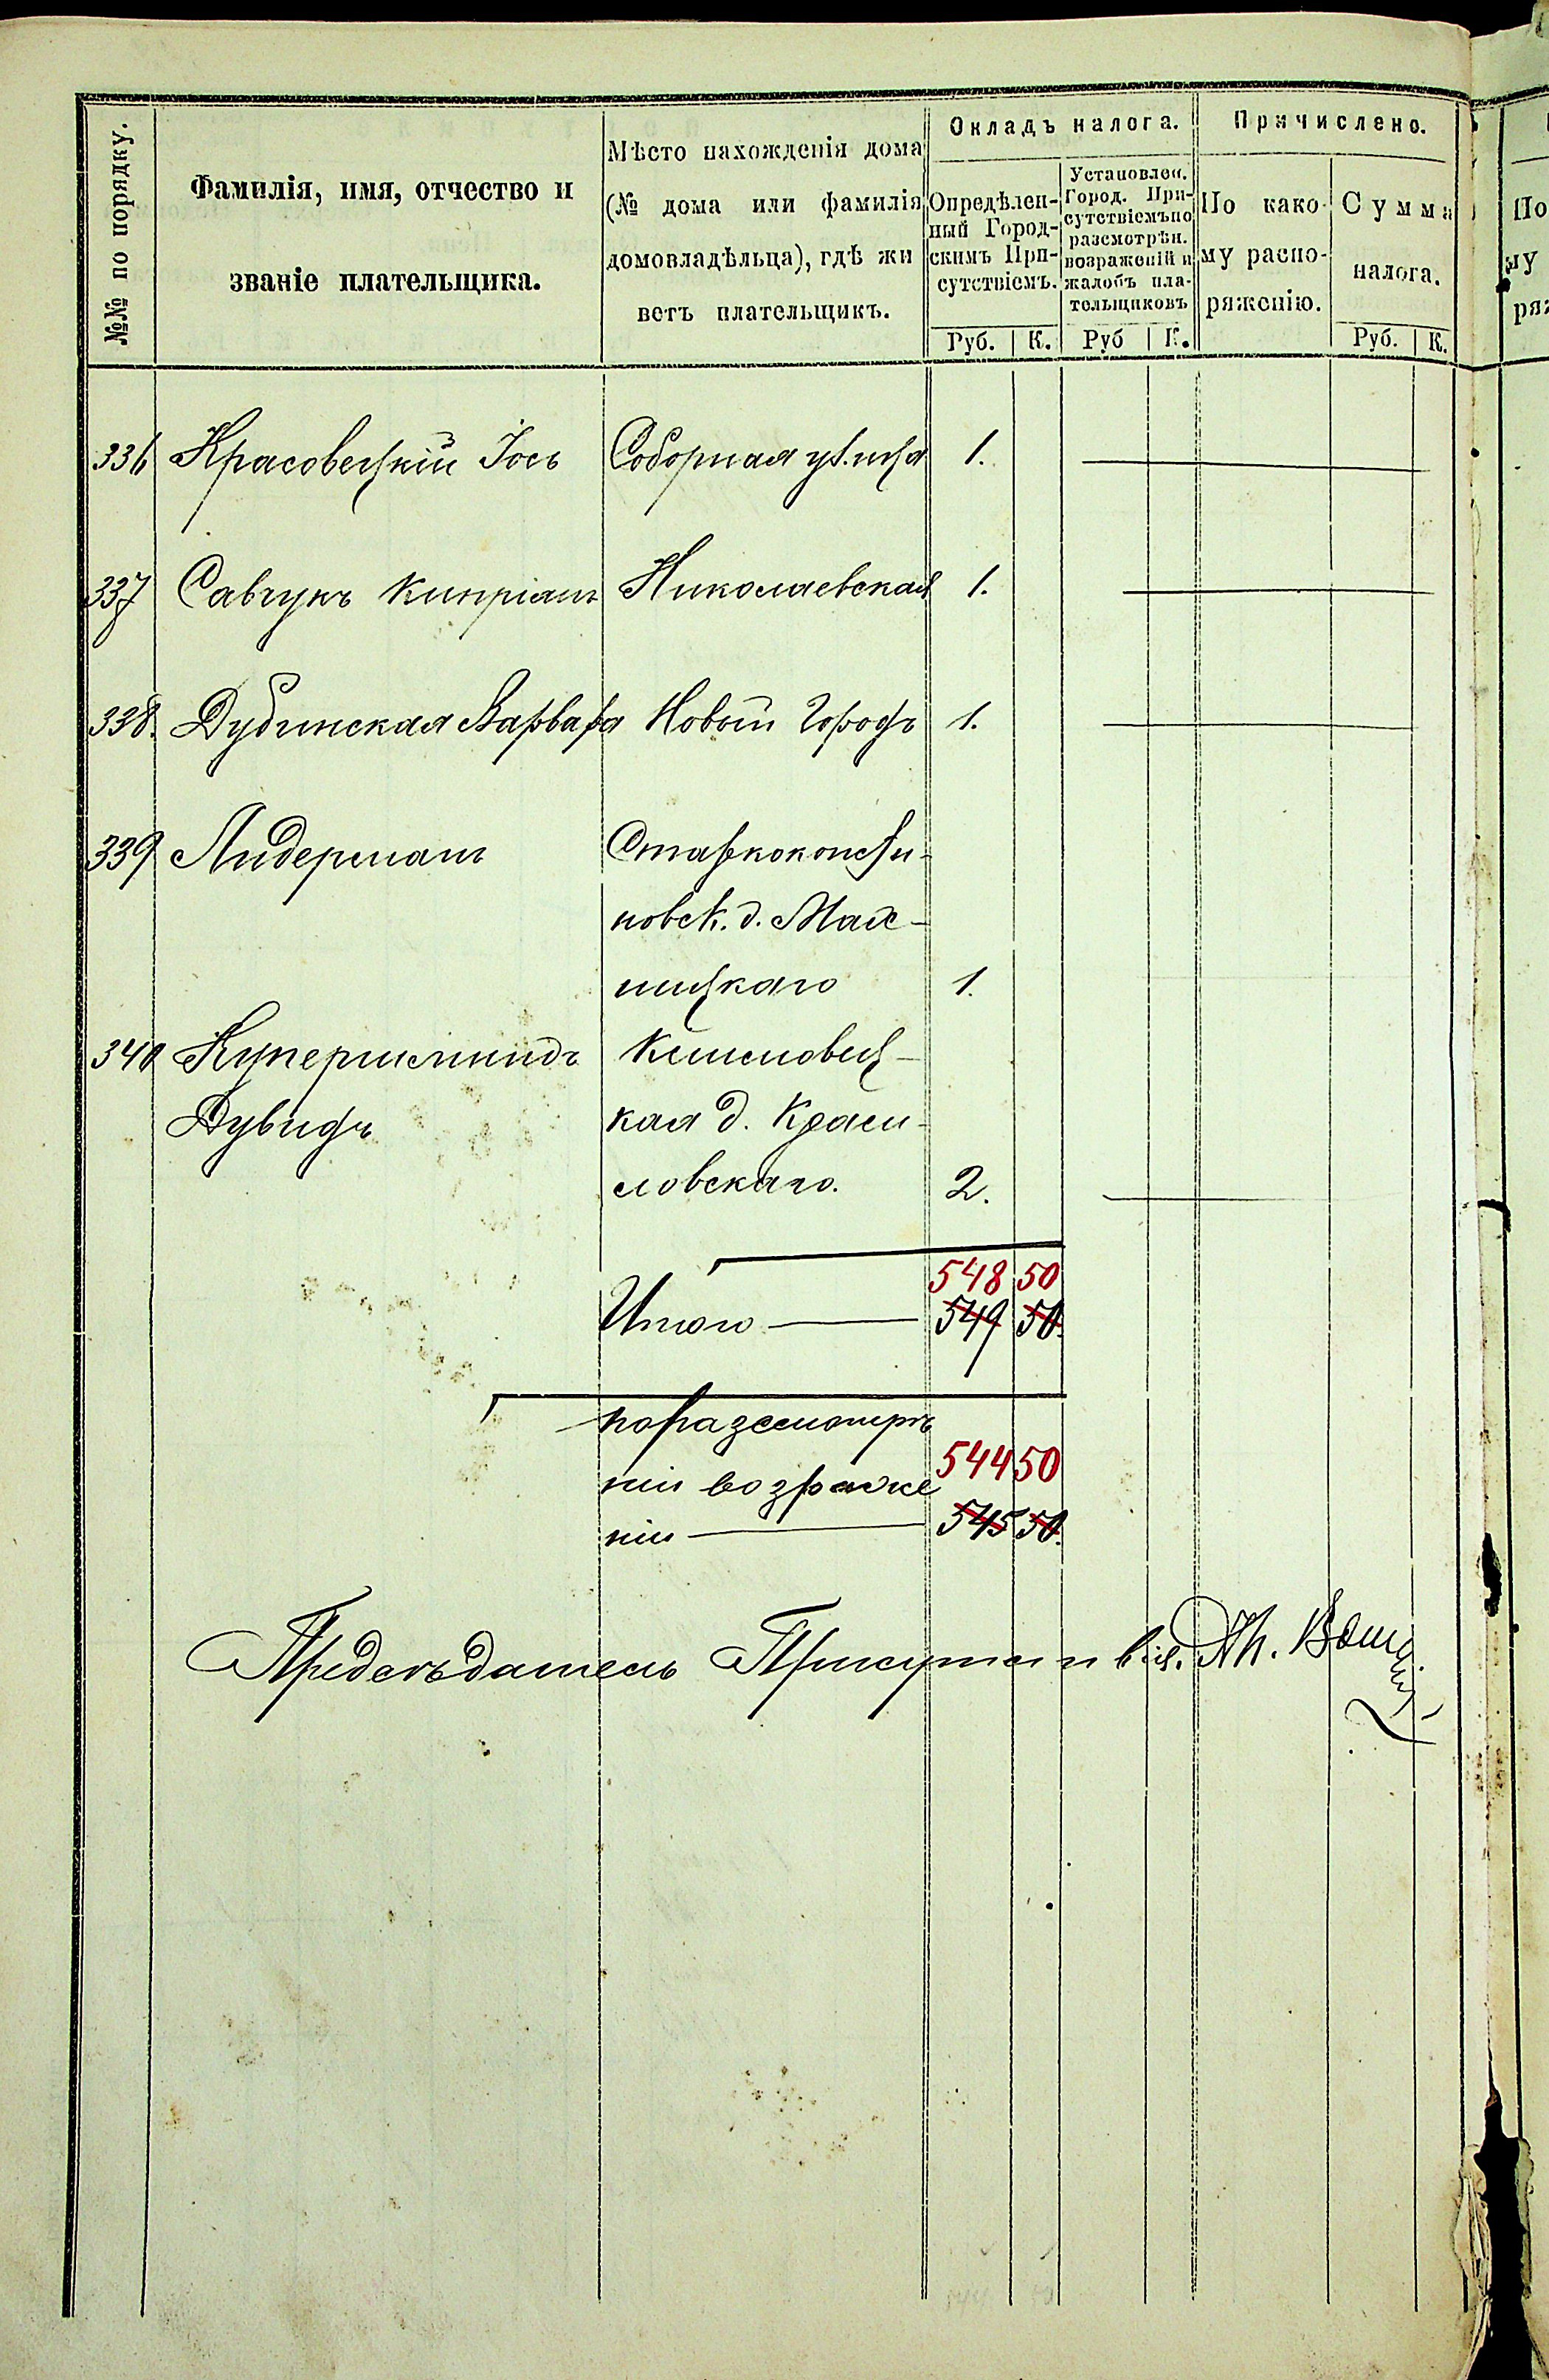 №№ по порядку.
Фамилія, имя, отчество и
званіе плательщика.
Мѣсто нахожденія дома
(№ дома или фамилія
домовладѣльца), гдѣ жи
ветъ плательщикъ.
Окладъ налога.
Опредѣлен-
ный Город-
скимъ При-
сутствіемъ.
Руб. К.
Установлен.
Город. При-
сутствіемъ по
разсмотрѣн.
возраженій и
жалобъ пла-
тельщиковъ
Руб К.
Причислено.
По како-
му распо-
ряженію.
Сумма
налога.
Руб. К.
336 Красовецкій Іось Соборная улица 1.
337 Савчукъ Кипріанъ Николаевская 1.
338. Дубинская Варвара Новый Городъ 1.
339 Лидерманъ Староконстан-
новск. д.
ницкаго 1.
340 Купершмидъ
Дувидъ
кая д. Краси-
ловскаго. 2.
548 50
Итого 549 50.
по разсмотрѣ
ніи возраже 544 50
ніи 545 50.
Предсѣдатель Присутствія.
По
му
ряж